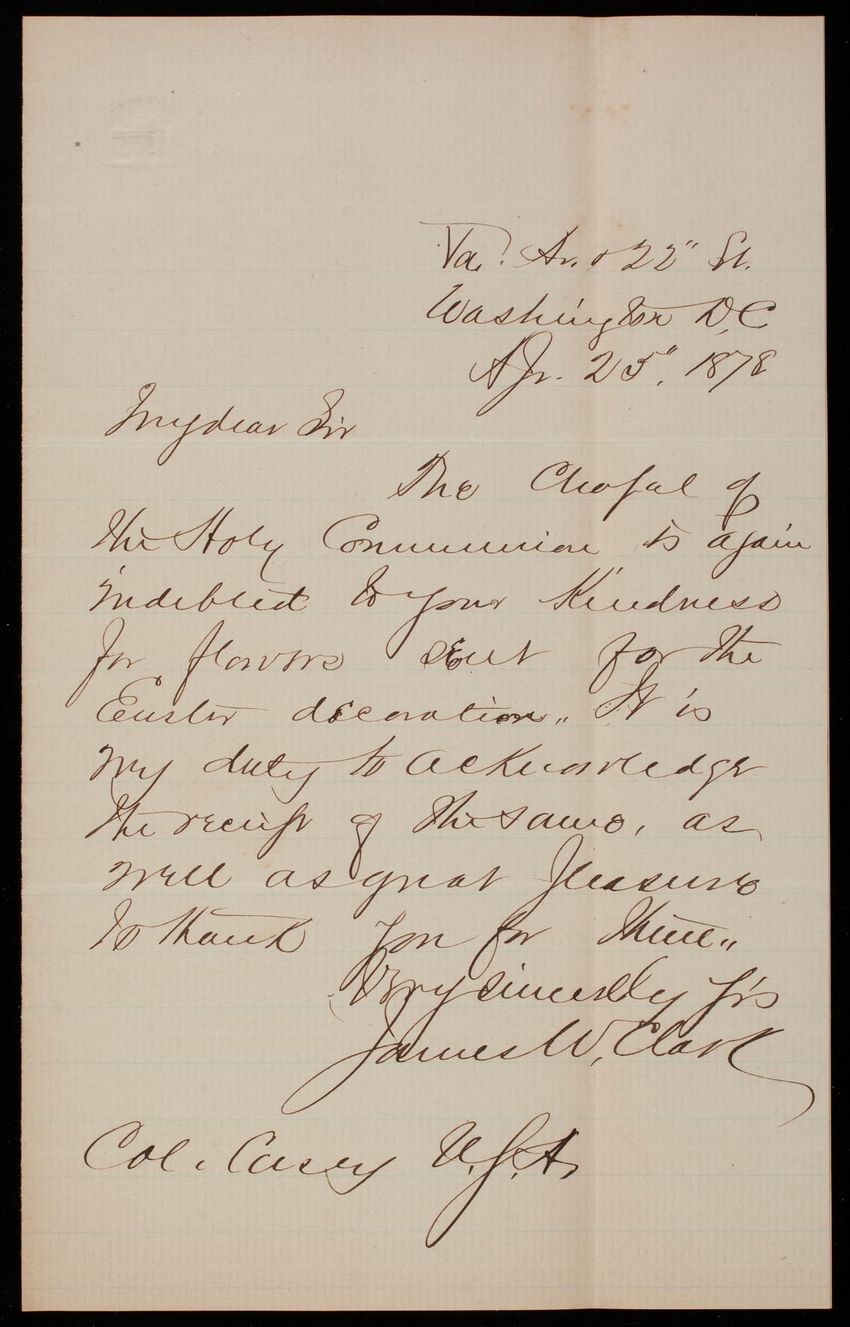 Va. Av. & 22" St.
Washington D.C
Apr. 25", 1878
My dear Sir
The Chapel of
the Holy Communion is again
indebted to your kindness
for flowers sent for the
Easter decoration,, It is
my duty to acknowledge
the receipt of the same, as
well as great pleasure
to thank you for them,,
Very sincerely Yrs
James W. Clark
Col. Casey U.S.A.